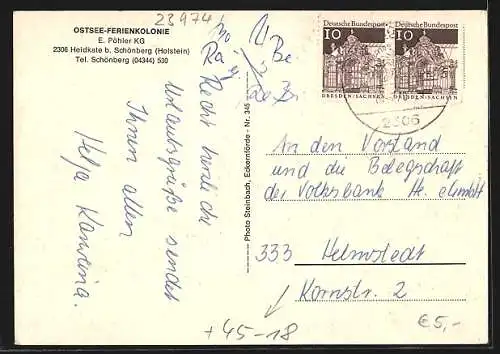 23974
OSTSEE-FERIENKOLONIE
E. Pöhler KG
2306 Heidkate b. Schönberg (Holstein)
Tel. Schönberg (04344) 530
Recht herzliche
Urlaubsgrüße sendet
Ihnen allen
Helja
Photo Steinbach, Eckernförde - Nr. 345
Deutsche Bundespost
10
DRESDEN/SACHSEN
Deutsche Bundespost
10
DRESDEN/SACHSEN
2306
An den Vorstand
und die Belegschaft
der Volksbank
333 Helmstedt
Kornstr. 2
+45-18
€5,-